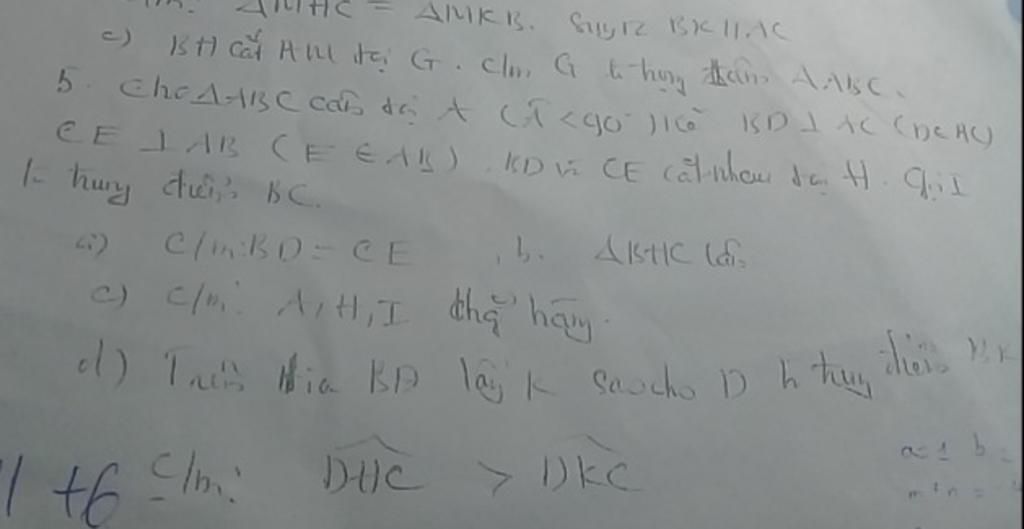 ΔMHC = ΔMKB. Suy ra BK // AC
c) BH cắt AM tại G. C/m G là trọng tâm ΔABC.
5. Cho ΔABC cân tại A (Â < 90°) kẻ BD ⊥ AC (D ∈ AC)
CE ⊥ AB (E ∈ AB). BD và CE cắt nhau tại H. Gọi I
là trung điểm BC.
a) C/m: BD = CE , b. ΔBHC cân
c) C/m: A, H, I thẳng hàng.
d) Trên tia BD lấy K sao cho D là trung điểm BK
1 + 6 C/m: DHC > DKC
a = 1 b =